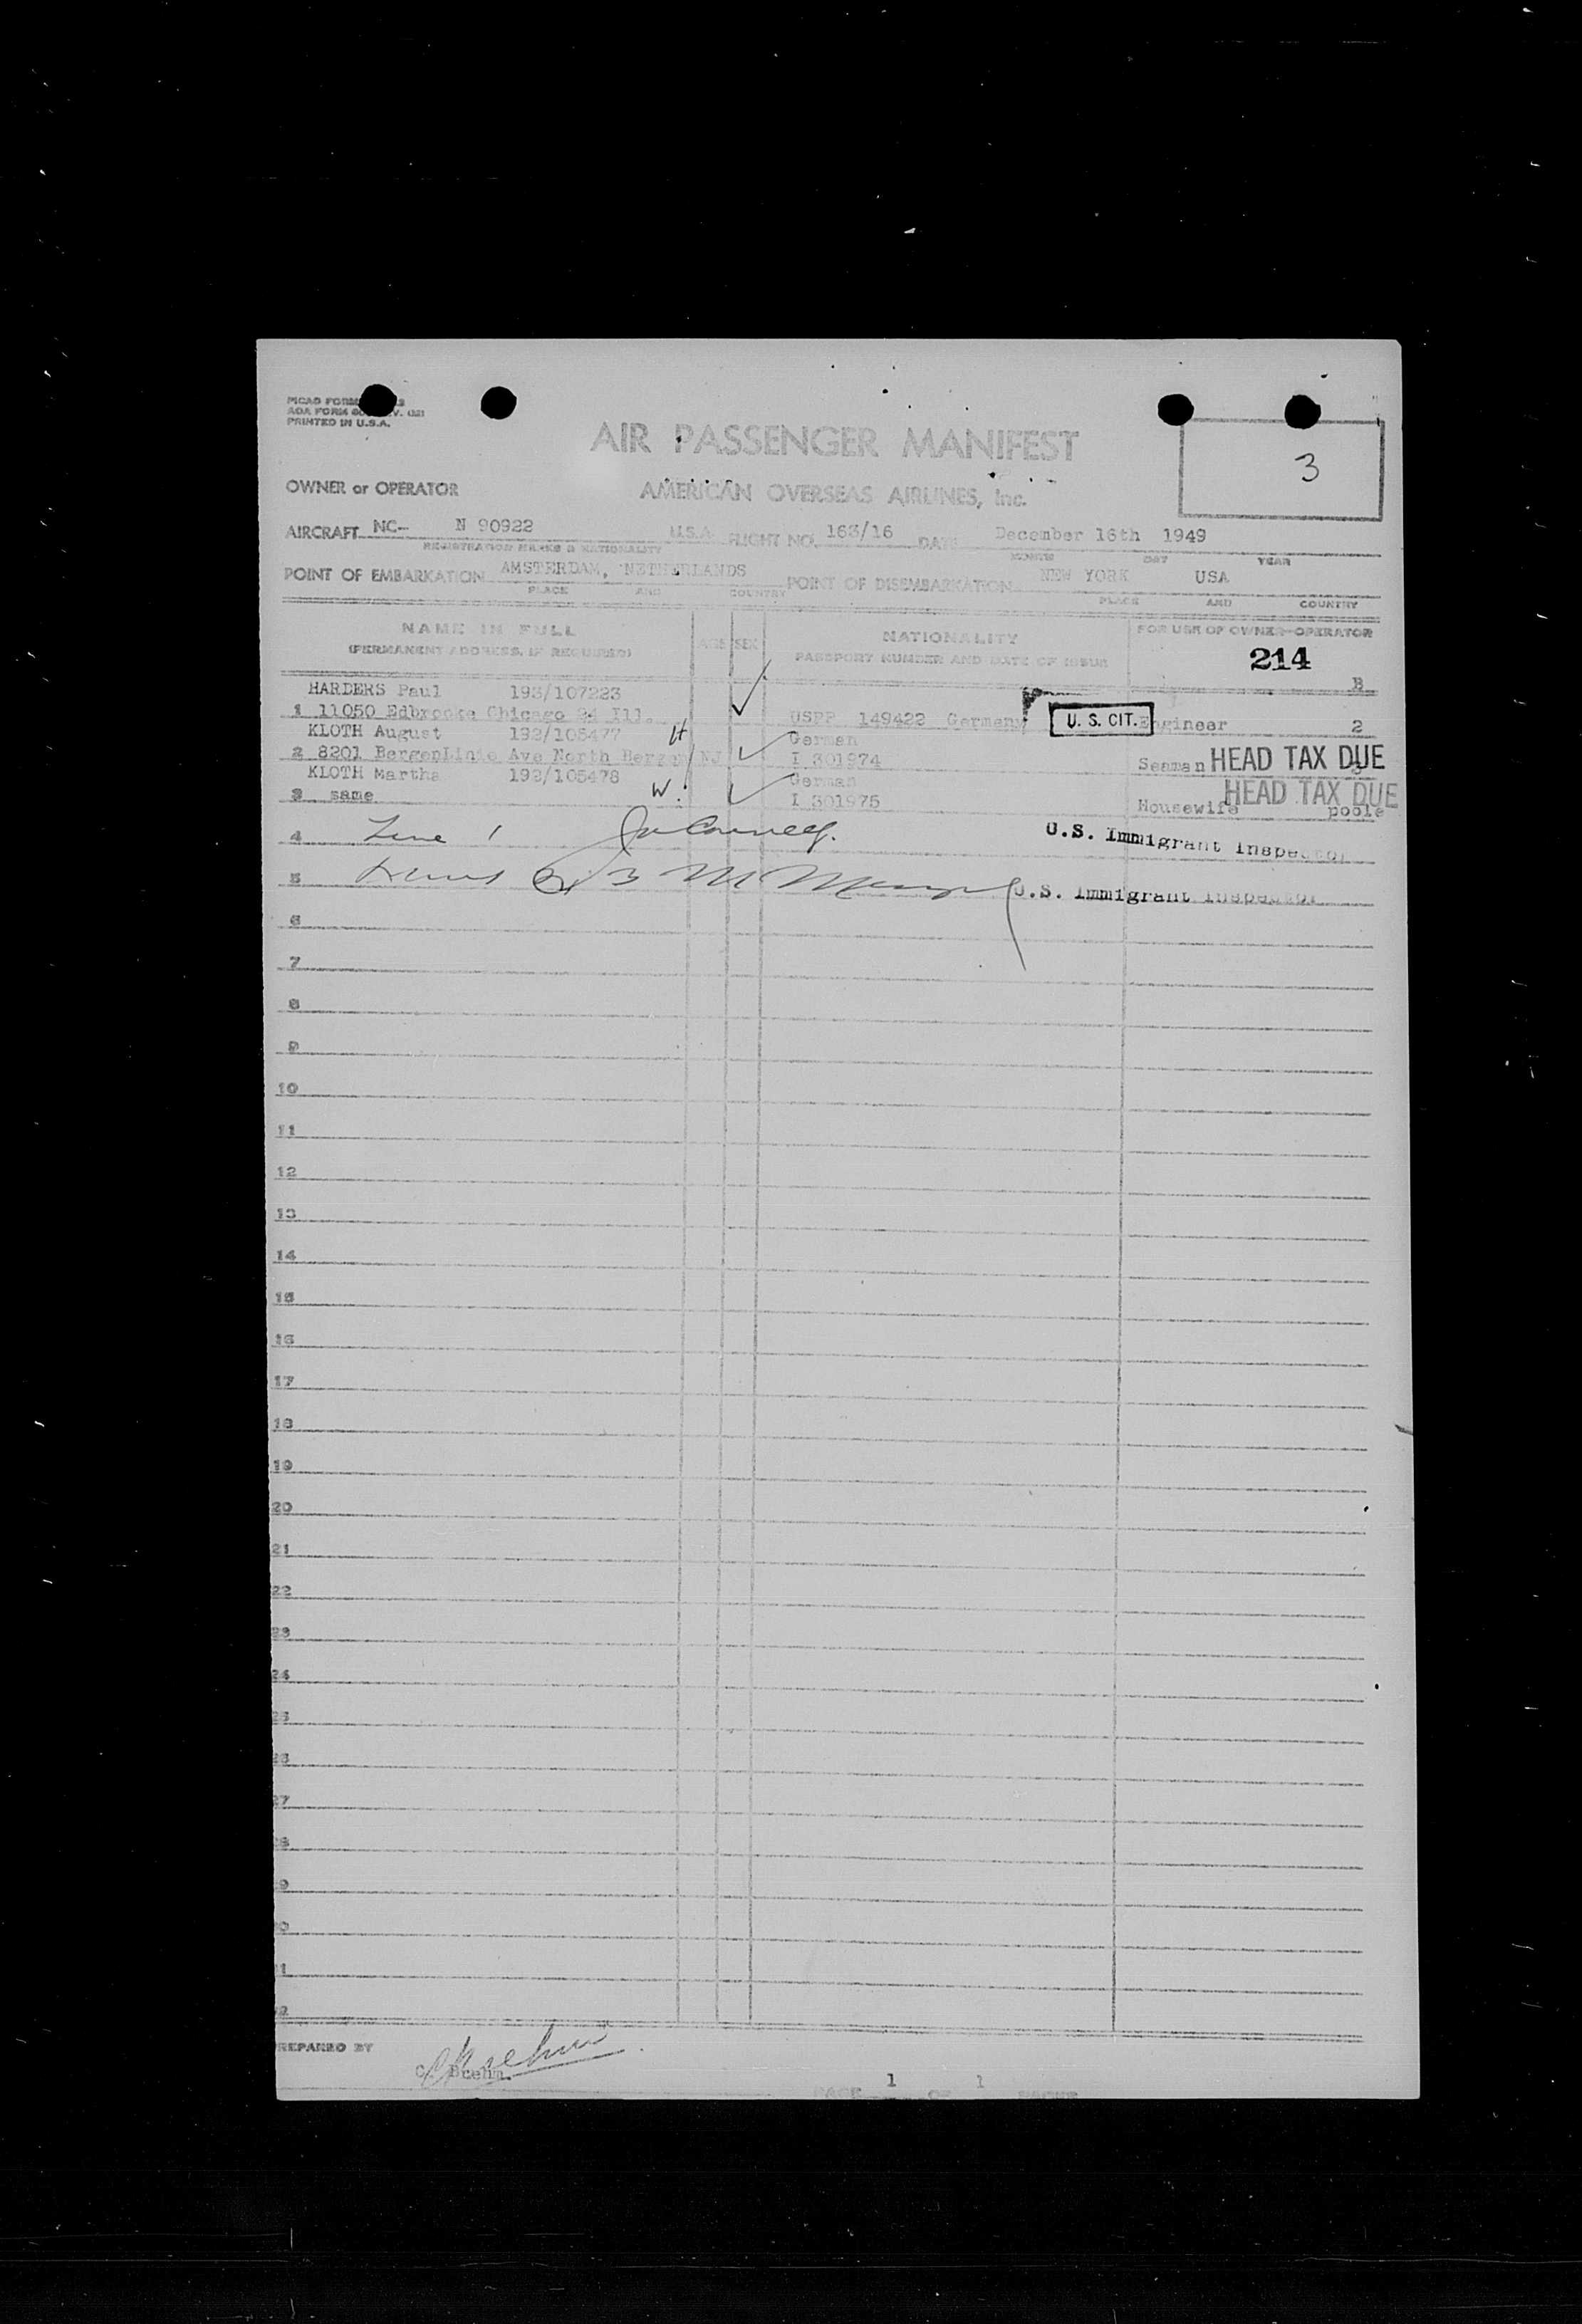 PICAO FORM
AOA FORM
PRINTED IN U.S.A.
3
AIR PASSENGER MANIFEST
OWNER or OPERATOR AMERICAN OVERSEAS AIRLINES, Inc.
AIRCRAFT NC- N 90922 U.S.A. FLIGHT NO. 163/16 DATE December 16th 1949
REGISTRATION MARKS & NATIONALITY MONTH DAY YEAR
POINT OF EMBARKATION AMSTERDAM, NETHERLANDS POINT OF DISEMBARKATION NEW YORK USA
PLACE AND COUNTRY PLACE AND COUNTRY
NAME IN FULL AGE SEX NATIONALITY FOR USE OF OWNER-OPERATOR
(PERMANENT ADDRESS, IF REQUIRED) PASSPORT NUMBER AND DATE OF ISSUE 214
HARDERS Paul 193/107223 B
1 11050 Edbrooke Chicago 24 Ill. USPP 149422 Germany U. S. CIT. Engineer 2
KLOTH August 192/105477 H German
2 8201 BergenLinie Ave North Bergen NJ I 301974 Seaman HEAD TAX DUE
KLOTH Martha 192/105478 W. German HEAD TAX DUE
3 same I 301975 Housewife poole
4 Line 1 U.S. Immigrant Inspector
5 2 3 U.S. Immigrant Inspector
6
7
8
9
10
11
12
13
14
15
16
17
18
19
20
21
22
23
24
25
26
27
28
29
30
31
32
PREPARED BY
C. Boehm.
PAGE 1 OF 1 PAGES